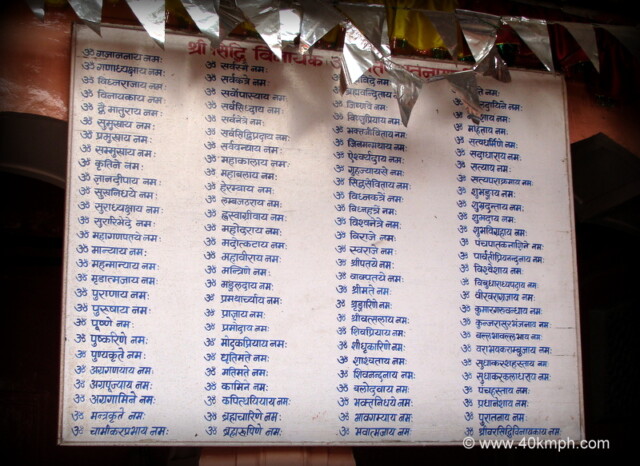 श्री सिद्धि विनायक
ॐ गजाननाय नमः
ॐ गणाध्यक्षाय नमः
ॐ विघ्नराजाय नमः
ॐ विनायकाय नमः
ॐ द्वै मातुराय नमः
ॐ सुमुखाय नमः
ॐ प्रमुखाय नमः
ॐ सन्मुखाय नमः
ॐ कृतिने नमः
ॐ ज्ञानदीपाय नमः
ॐ सुखनिधये नमः
ॐ सुराध्यक्षाय नमः
ॐ सुरारिभेदे नमः
ॐ महागणपतये नमः
ॐ मान्याय नमः
ॐ महन्मान्याय नमः
ॐ मृडात्मजाय नमः
ॐ पुराणाय नमः
ॐ पुरूषाय नमः
ॐ पूष्णे नमः
ॐ पुष्करिणे नमः
ॐ पुण्यकृते नमः
ॐ अग्रगण्याय नमः
ॐ अग्रपूज्याय नमः
ॐ अग्रगामिने नमः
ॐ मन्त्रकृते नमः
ॐ चामीकरप्रभाय नमः
ॐ सर्वस्मै नमः
ॐ सर्वकत्रे नमः
ॐ सर्वोपास्याय नमः
ॐ सर्वसिध्दाय नमः
ॐ सर्वनेत्रे नमः
ॐ सर्वसिद्विप्रदाय नमः
ॐ सर्ववन्द्याय नमः
ॐ महाकालाय नमः
ॐ महाबलाय नमः
ॐ हेरम्बाय नमः
ॐ लम्बजठराय नमः
ॐ ह्रस्वाग्रीवाय नमः
ॐ महोदराय नमः
ॐ मदोत्कटाय नमः
ॐ महावीराय नमः
ॐ मन्त्रिणे नमः
ॐ मङ्गलदाय नमः
ॐ प्रमथाच्र्याय नमः
ॐ प्राज्ञाय नमः
ॐ प्रमोदाय नमः
ॐ मोदकप्रियाय नमः
ॐ धृतिमते नमः
ॐ मतिमते नमः
ॐ कामिने नमः
ॐ कपित्थप्रियाय नमः
ॐ ब्रह्मचारिणे नमः
ॐ ब्रह्मरूपिणे नमः
ॐ विष्णवे नमः
ॐ विष्णुप्रियाय नमः
ॐ भक्तजीविताय नमः
ॐ जितमन्मथाय नमः
ॐ ऐश्वर्यदाय नमः
ॐ गुहज्यायसे नमः
ॐ सिद्धसेविताय नमः
ॐ विघ्नकत्रे नमः
ॐ विघ्नहत्रे नमः
ॐ विश्वनेत्रे नमः
ॐ विराजे नमः
ॐ स्वराजे नमः
ॐ श्रीपतये नमः
ॐ वाक्पतये नमः
ॐ श्रीमते नमः
ॐ श्रृङ्गारिणे नमः
ॐ श्रीवत्सलाय नमः
ॐ शिवप्रियाय नमः
ॐ शीघ्रकारिणे नमः
ॐ शाश्वताय नमः
ॐ शिवनन्दनाय नमः
ॐ बलोद्धाय नमः
ॐ भक्तनिधये नमः
ॐ भावगम्याय नमः
ॐ भवात्मजाय नमः
ॐ महते नमः
ॐ सत्यधर्मिणे नमः
ॐ सदाधाराय नमः
ॐ सत्याय नमः
ॐ सत्यपराक्रमाय नमः
ॐ शुभङाय नमः
ॐ शुभ्रदन्ताय नमः
ॐ शुभदाय नमः
ॐ शुभविग्रहाय नमः
ॐ पंचपातकनाशिने नमः
ॐ पार्वतीप्रियनन्दनाय नमः
ॐ विश्वेशाय नमः
ॐ विबुधाराध्यपदाय नमः
ॐ वीरवरगजाय नमः
ॐ कुमारगुरुवन्धाय नमः
ॐ कुन्जरासुरभंजनाय नमः
ॐ वल्लभावल्लभाय नमः
ॐ वराभयकराम्बुजाय नमः
ॐ सुधाकलशहस्ताय नमः
ॐ सुधाकरकलाधराय नमः
ॐ पंचहस्ताय नमः
ॐ प्रधानेशाय नमः
ॐ पुरातनाय नमः
ॐ श्रीवरसिद्धिविनायकाय नमः
© www.40kmph.com